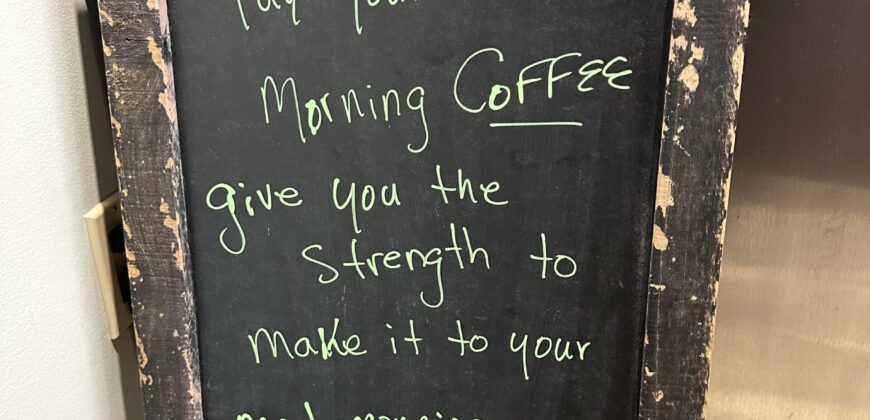 your
Morning COFFEE
give you the
Strength to
make it to your